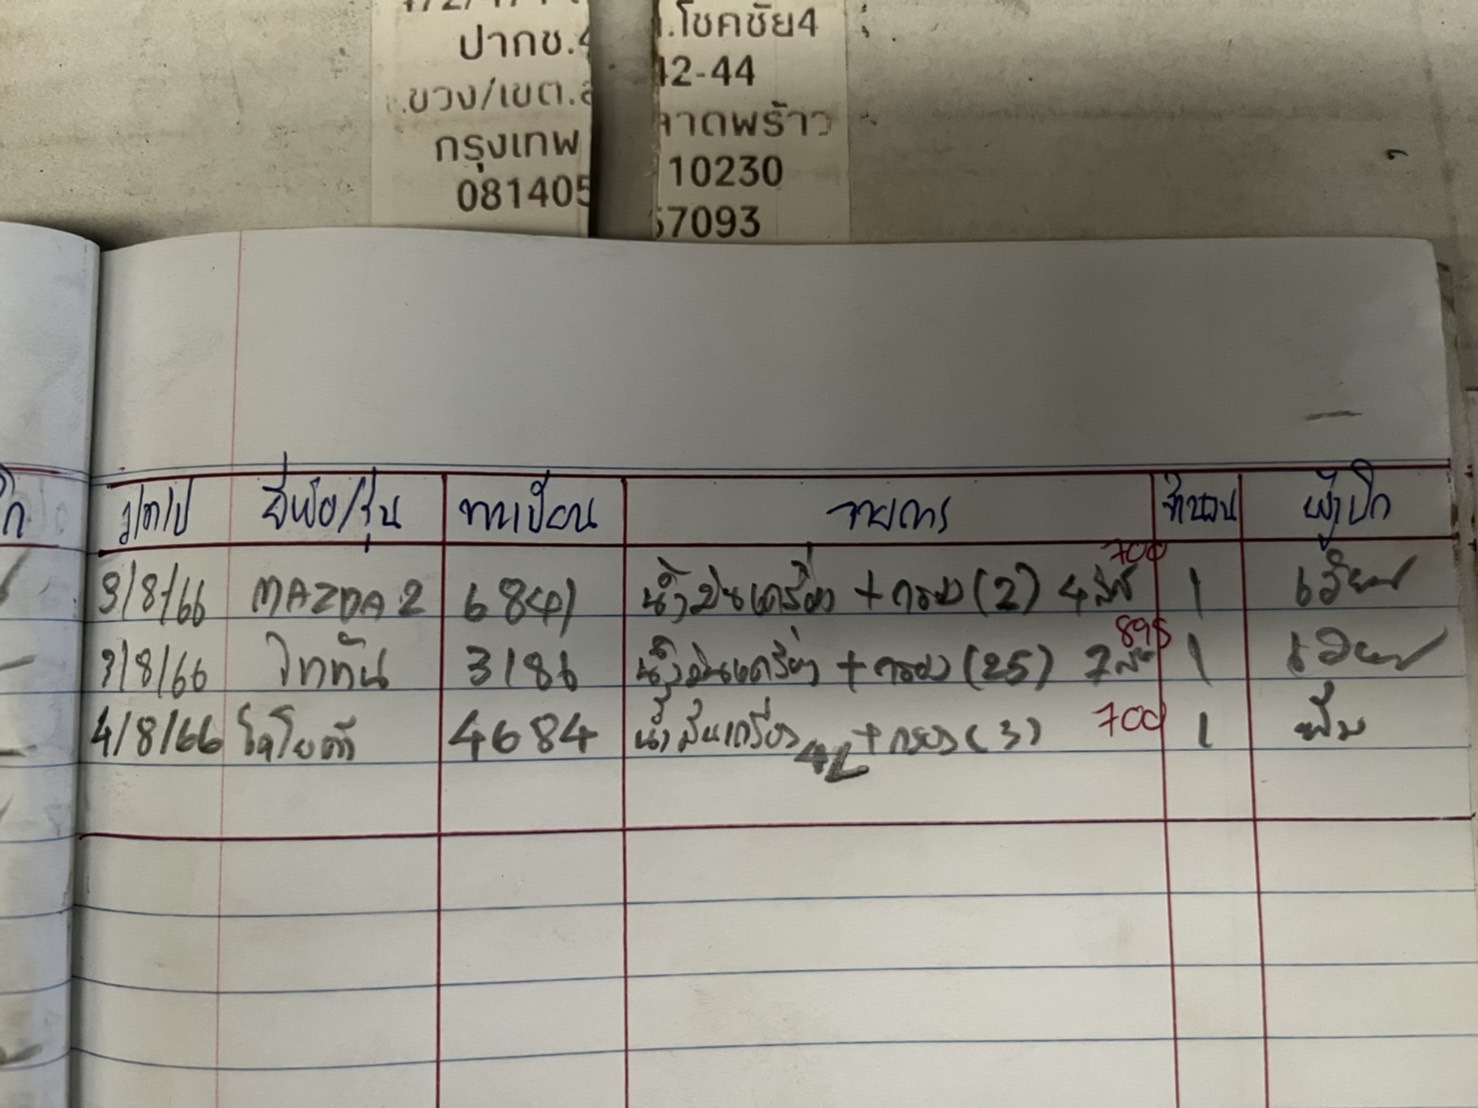 ปากช.4
.โชคชัย4
.ขวง/เขต.ล
42-44
กรุงเทพ
ลาดพร้าว
081405
10230
57093
ว/ด/ป ยี่ห้อ/รุ่น ทะเบียน รายการ จำนวน ผู้เบิก
3/8/66 MAZDA 2 6841 น้ำมันเครื่อง + กรอง (2) 4 ลิตร 700 1
3/8/66 ไททัน 3186 น้ำมันเครื่อง + กรอง (25) 7 ลิตร 895 1
4/8/66 โตโยต้า 4684 น้ำมันเครื่อง 4L + กรอง (3) 700 1